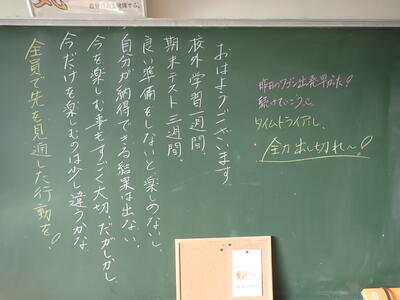 おはようございます
校外学習一週間、
期末テスト三週間、
良い準備をしないと楽しめないし
自分が納得できる結果は出ない。
今を楽しむ事もすごく大切。だがしかし
今だけを楽しむのは少し違うかな
全員で先を見通した行動を!
昨日のワゴン出発早かった!
続けていこう
タイムトライアル、
全力出し切れ〜!